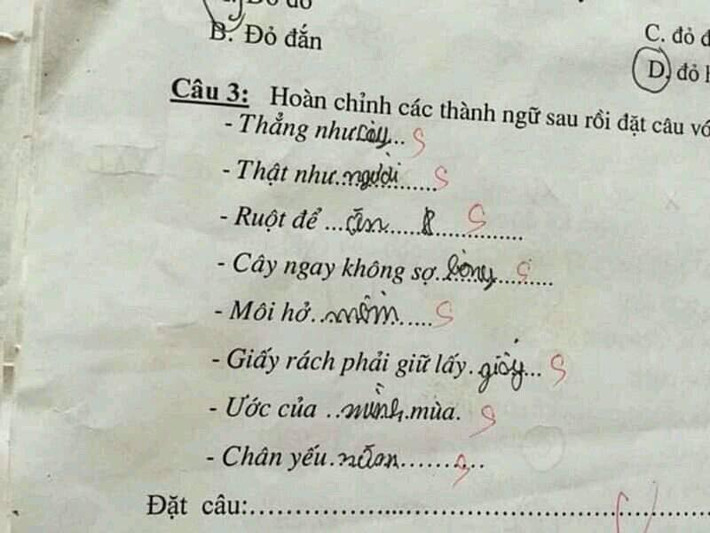 B. Đỏ đắn
C. đỏ đ
D. đỏ h
Câu 3: Hoàn chỉnh các thành ngữ sau rồi đặt câu vớ
- Thẳng như cây... S
- Thật như người...... S
- Ruột để ...ăn............ S
- Cây ngay không sợ.. bòng........ S
- Môi hở..mồm..... S
- Giấy rách phải giữ lấy. giấy... S
- Ước của ..mình.mùa. S
- Chân yếu.......... S
Đặt câu:..............................